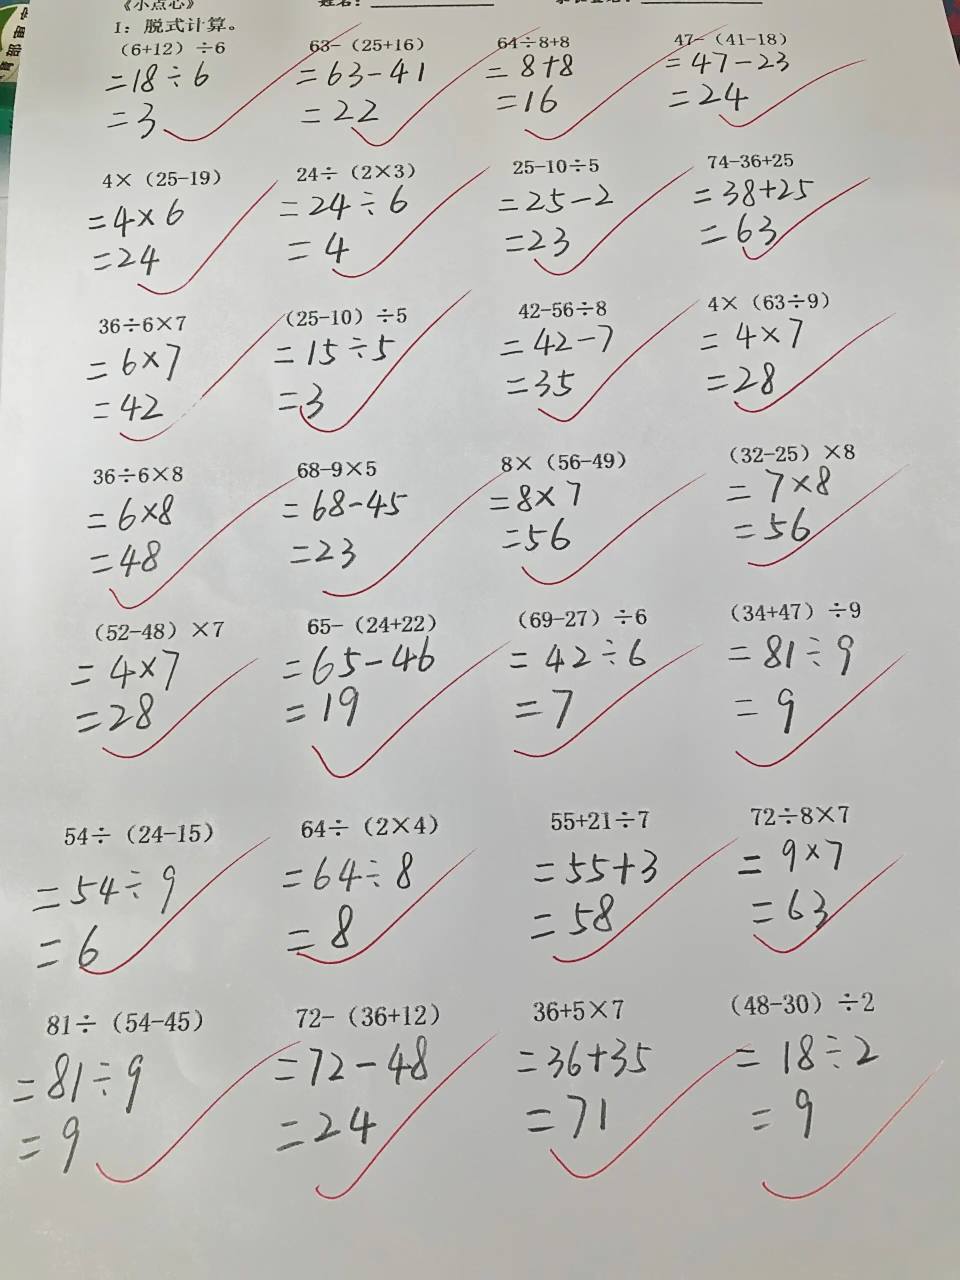 《小点心》
1: 脱式计算。
(6+12) ÷6 63-(25+16) 64÷8+8 47-(41-18)
=18÷6 =63-41 =8+8 =47-23
=3 =22 =16 =24
4×(25-19) 24÷(2×3) 25-10÷5 74-36+25
=4×6 =24÷6 =25-2 =38+25
=24 =4 =23 =63
36÷6×7 (25-10) ÷5 42-56÷8 4×(63÷9)
=6×7 =15÷5 =42-7 =4×7
=42 =3 =35 =28
36÷6×8 68-9×5 8×(56-49) (32-25) ×8
=6×8 =68-45 =8×7 =7×8
=48 =23 =56 =56
(52-48) ×7 65-(24+22) (69-27) ÷6 (34+47) ÷9
=4×7 =65-46 =42÷6 =81÷9
=28 =19 =7 =9
54÷(24-15) 64÷(2×4) 55+21÷7 72÷8×7
=54÷9 =64÷8 =55+3 =9×7
=6 =8 =58 =63
81÷(54-45) 72-(36+12) 36+5×7 (48-30) ÷2
=81÷9 =72-48 =36+35 =18÷2
=9 =24 =71 =9